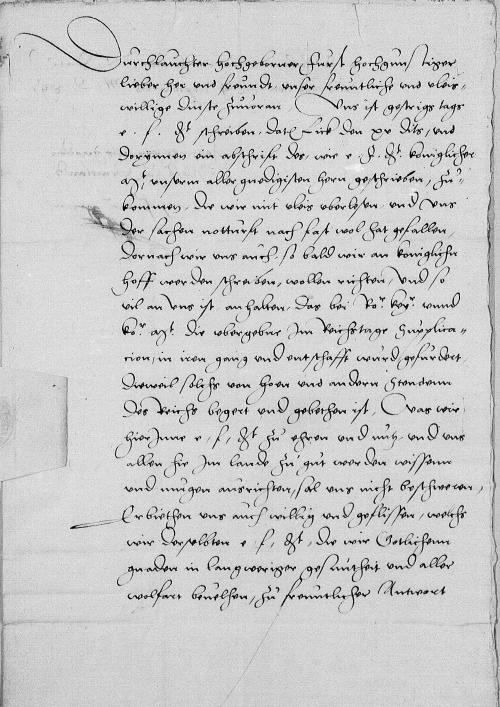 Durchlauchter hochgeborner Furst hochgunstiger
lieber her und freundt unser freuntliche und vleis-
willige dinste zuuoran Uns ist gestrigs tags
e. f. g. schreiben, dat. Lick den xv dits, und
dorynnen ein abschrift des, wie e. f. g. koniglicher
mt. unserm allergnedigisten hern geschrieben, zu-
kommen, die wir mit vleis vberlesen, und Uns
der sachen notturft nach fast wol hat gefallen,
dornach wir uns auch, so bald wir an koniglichen
hoff werden schreiben, wollen richten, Und so
vil an uns ist anhalten, das bei Ro. key. unnd
ko. mt. die vbergebne Im Reichstage Supplica-
cion, in iren gang und entschafft wurd gefurdert,
dieweil solchs von hoen und andern Stenden
des Reichs begert und gebethen ist, Was wir
hierInne e. f. g. zu ehren und nutz, und uns
allen hie Im lande zu gut werden wissenn
und mugen ausrichten, sol uns nicht beschweren,
Erbiethen uns auch willig und geflissen, welchs
wir derselbten e. f. g., die wir Gotlichenn
gnaden in langweriger gesuntheit und aller
wolfart beuelhen, zu freuntlicher Antwort